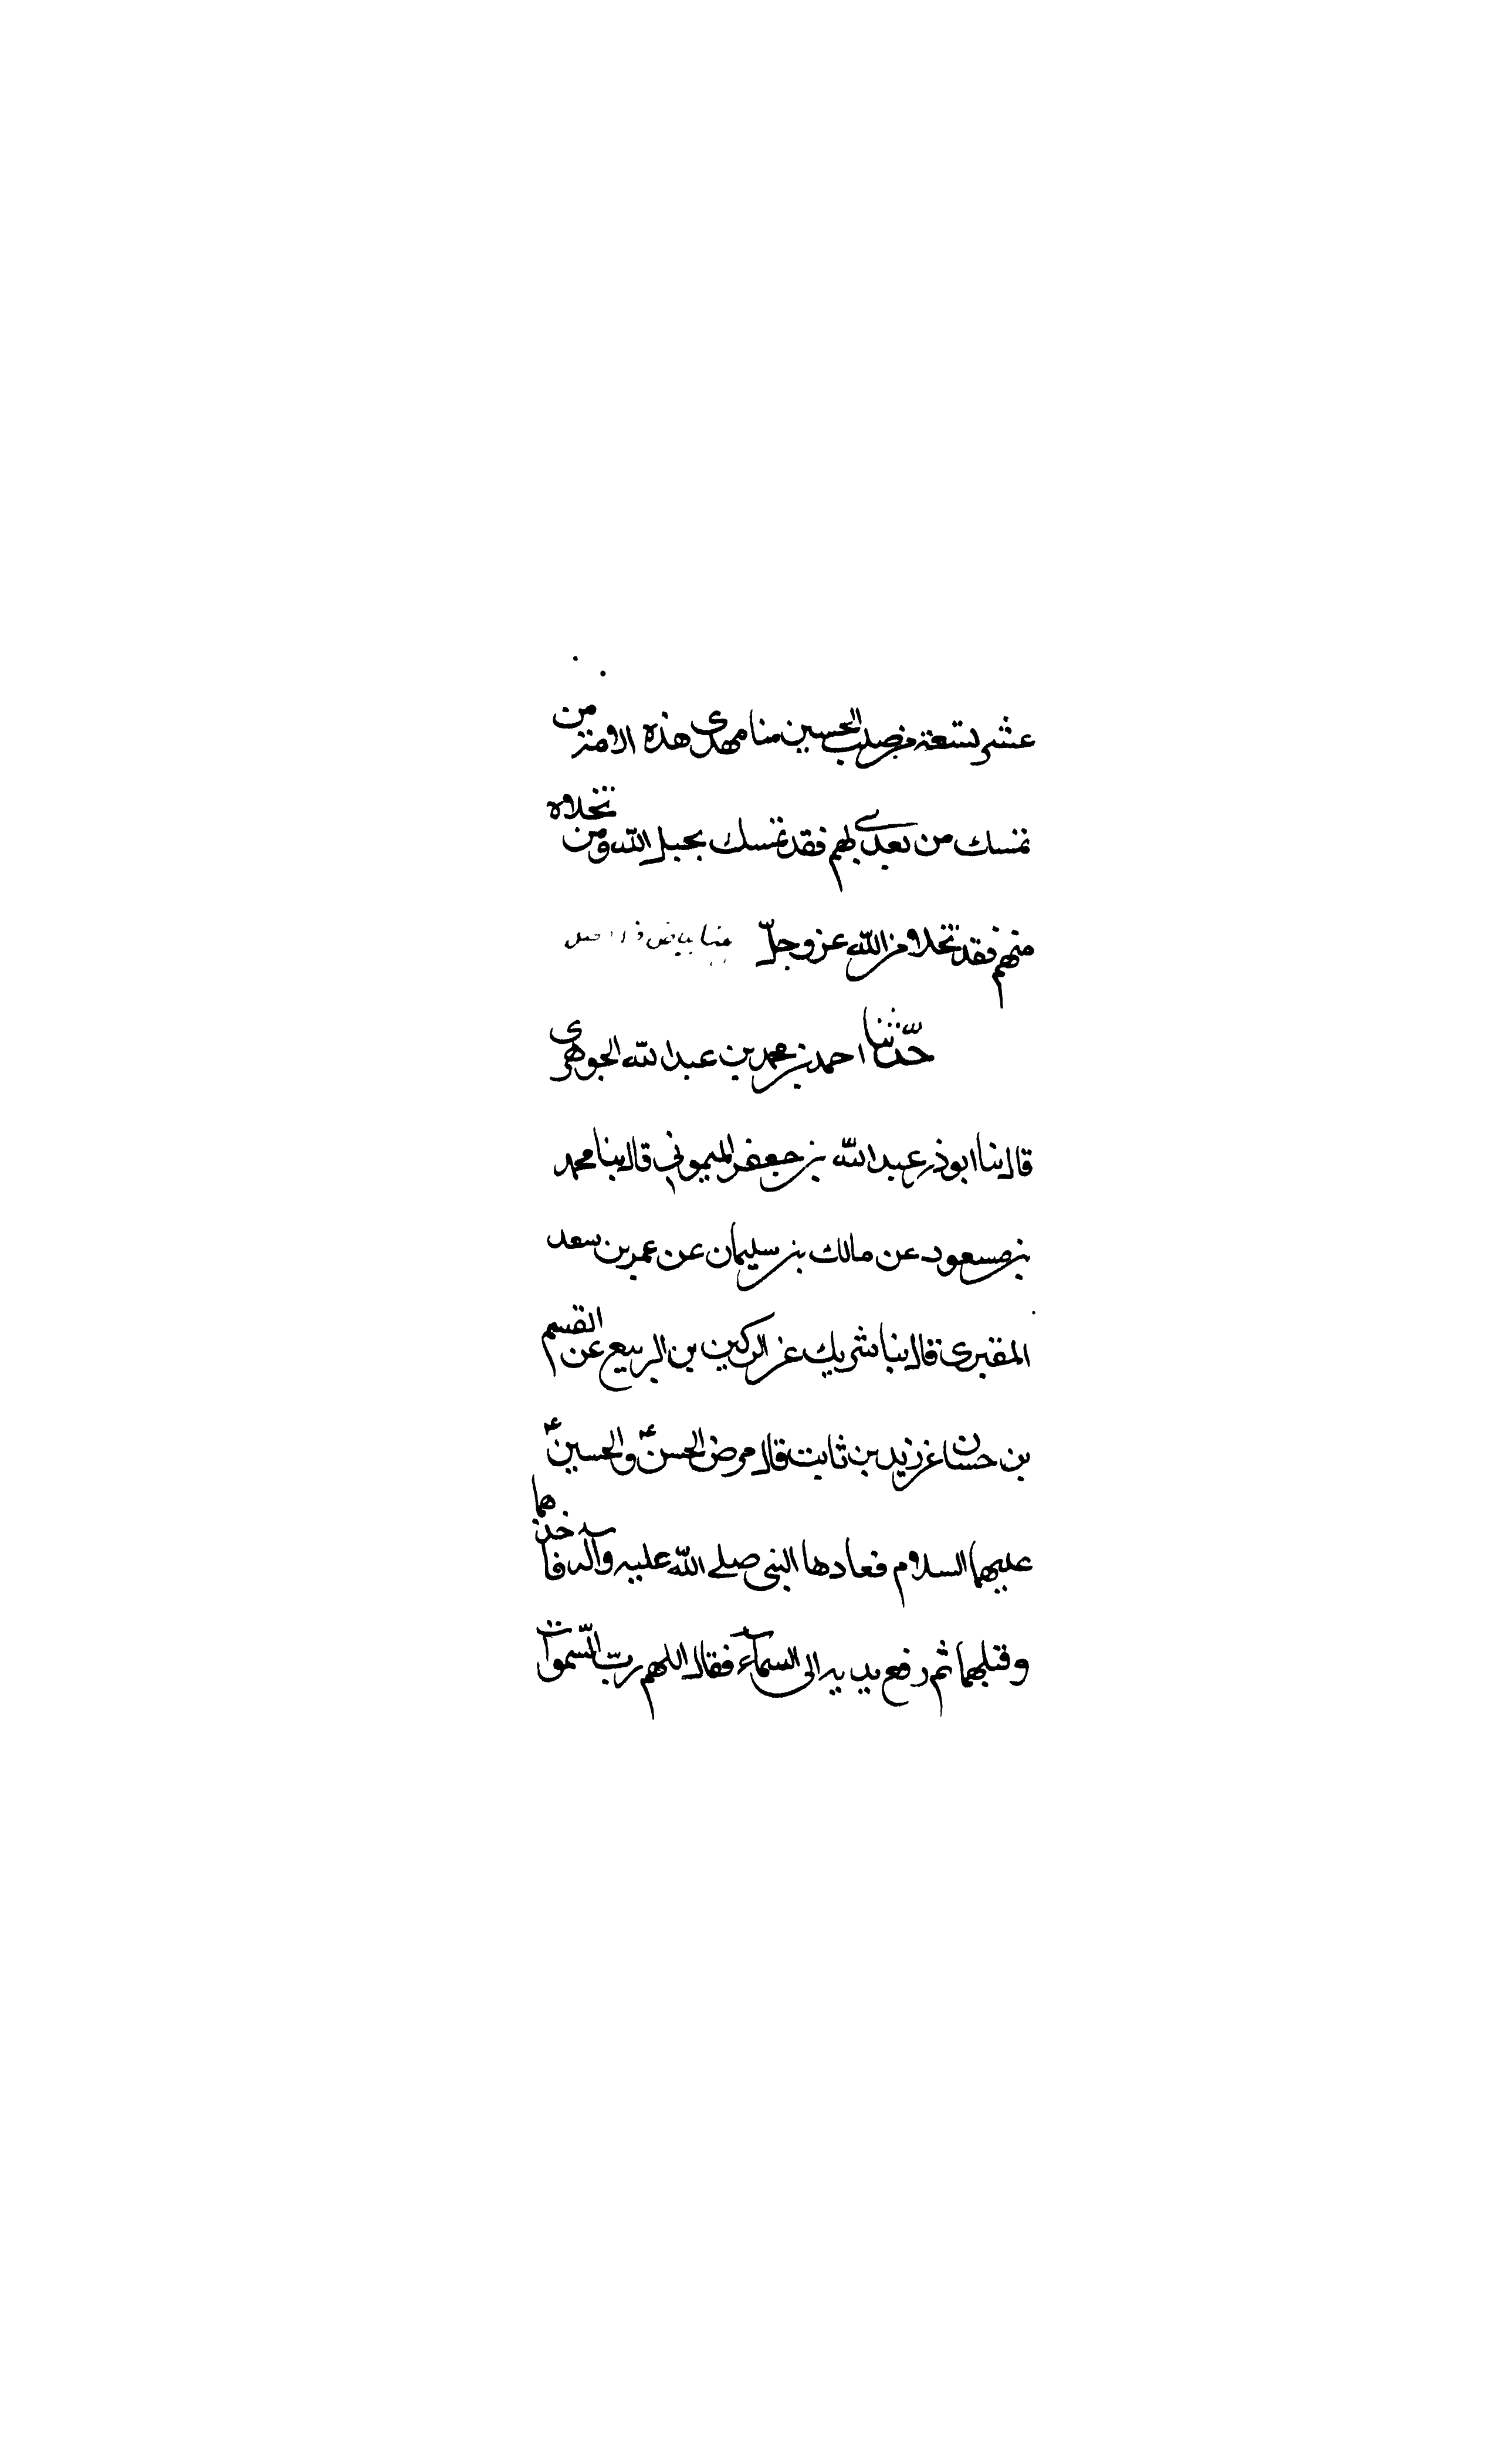 عشر تسعة من صلب الحسين منا مهدى هذه الامة من
تمسك من بعدى بهم فقد تمسك بحبل الله ومن تخلاه
منهم فقد تخلا من الله عز وجلّ هنا بياض فى الاصل
حدّثنا احمد بن محمد بن عبد الله الجوهرى
قال نبا ابوذر عبد الله بن جعفر الميمونى قال نبا محمد
بن مسعود عن مالك بن سليمان عن عمر بن سعد
المقبرى قال نبا شريك عن الركين بن الربيع عن القسم
بن حسان عن زيد بن ثابت قال مرض الحسن ع والحسين ع
عليهما السلام فعادها النبى صلى الله عليه وآله فاخذهما
وقبلهما ثم رفع يديه الى السماء فقال اللهم ربّ السّموات